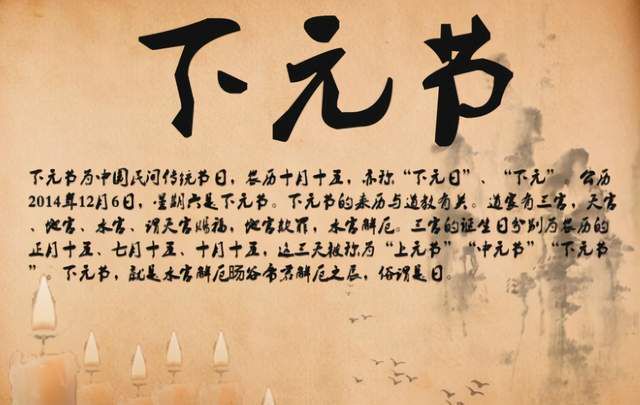 下元节
下元节为中国民间传统节日，农历十月十五，亦称“下元日”、“下元”。公历
2014年12月6日，星期六是下元节。下元节的来历与道教有关。道家有三官，天官
、地官、水官、谓天官赐福，地官赦罪，水官解厄。三官的诞生日分别为农历的
正月十五、七月十五、十月十五，这三天被称为“上元节”“中元节”“下元节
”。下元节，就是水官解厄旸谷帝君解厄之辰，俗谓是日。